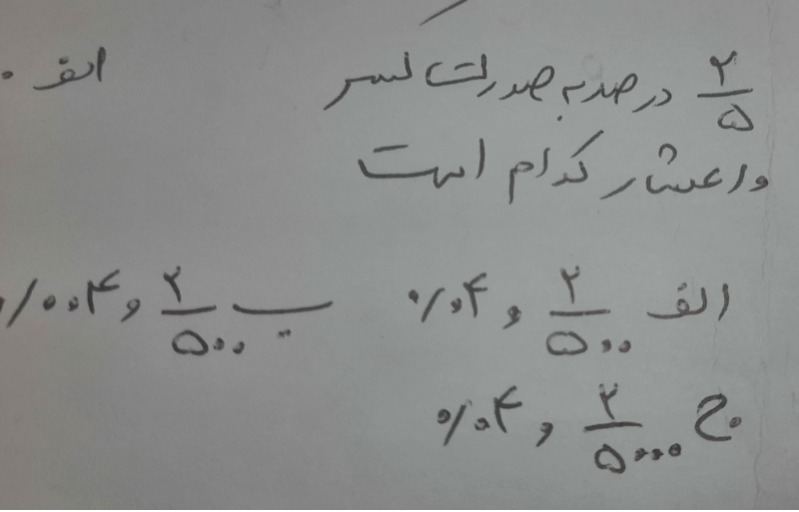 ۲/۵ درصد به صورت کسر الف ۰
و اعشار کدام است
الف ۲/۵۰۰ و ۰/۰۴ ب ۲/۵۰۰ و ۰/۰۰۴
ج ۲/۵۰۰۰ و ۰/۰۴